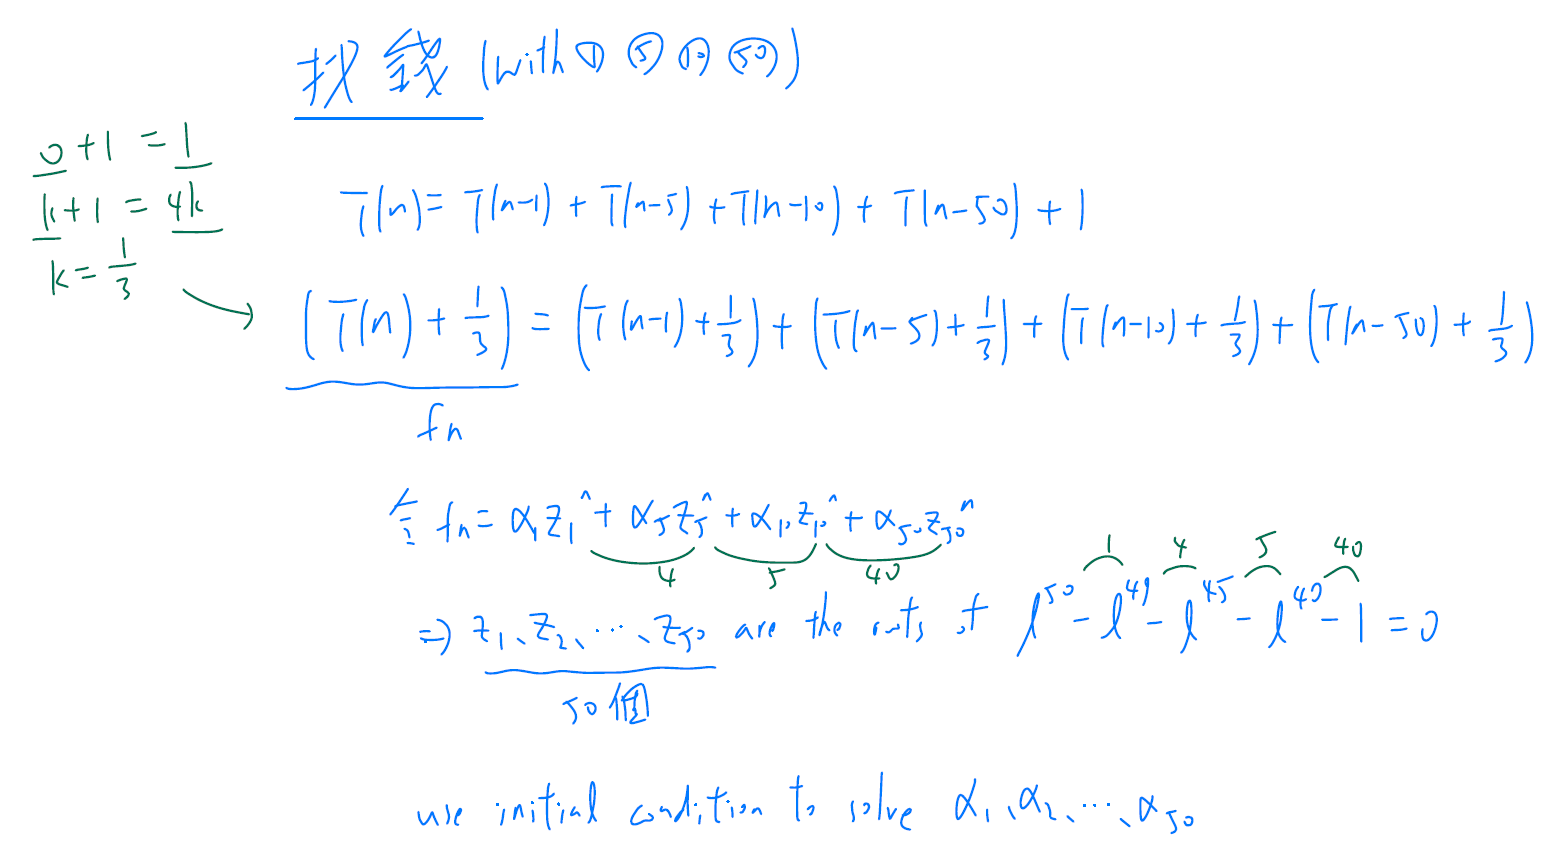 找錢 (with ① ⑤ ⑩ ㊿)
0+1 = 1
k+1 = 4k
k = 1/3
T(n) = T(n-1) + T(n-5) + T(n-10) + T(n-50) + 1
(T(n) + 1/3) = (T(n-1) + 1/3) + (T(n-5) + 1/3) + (T(n-10) + 1/3) + (T(n-50) + 1/3)
fn
令 fn = α₁z₁ⁿ + α₅z₅ⁿ + α₁₀z₁₀ⁿ + α₅₀z₅₀ⁿ
4 5 40
1 4 5 40
⇒ z₁、z₂、…、z₅₀ are the roots of l⁵⁰ - l⁴⁹ - l⁴⁵ - l⁴⁰ - 1 = 0
50個
use initial condition to solve α₁、α₂、…、α₅₀